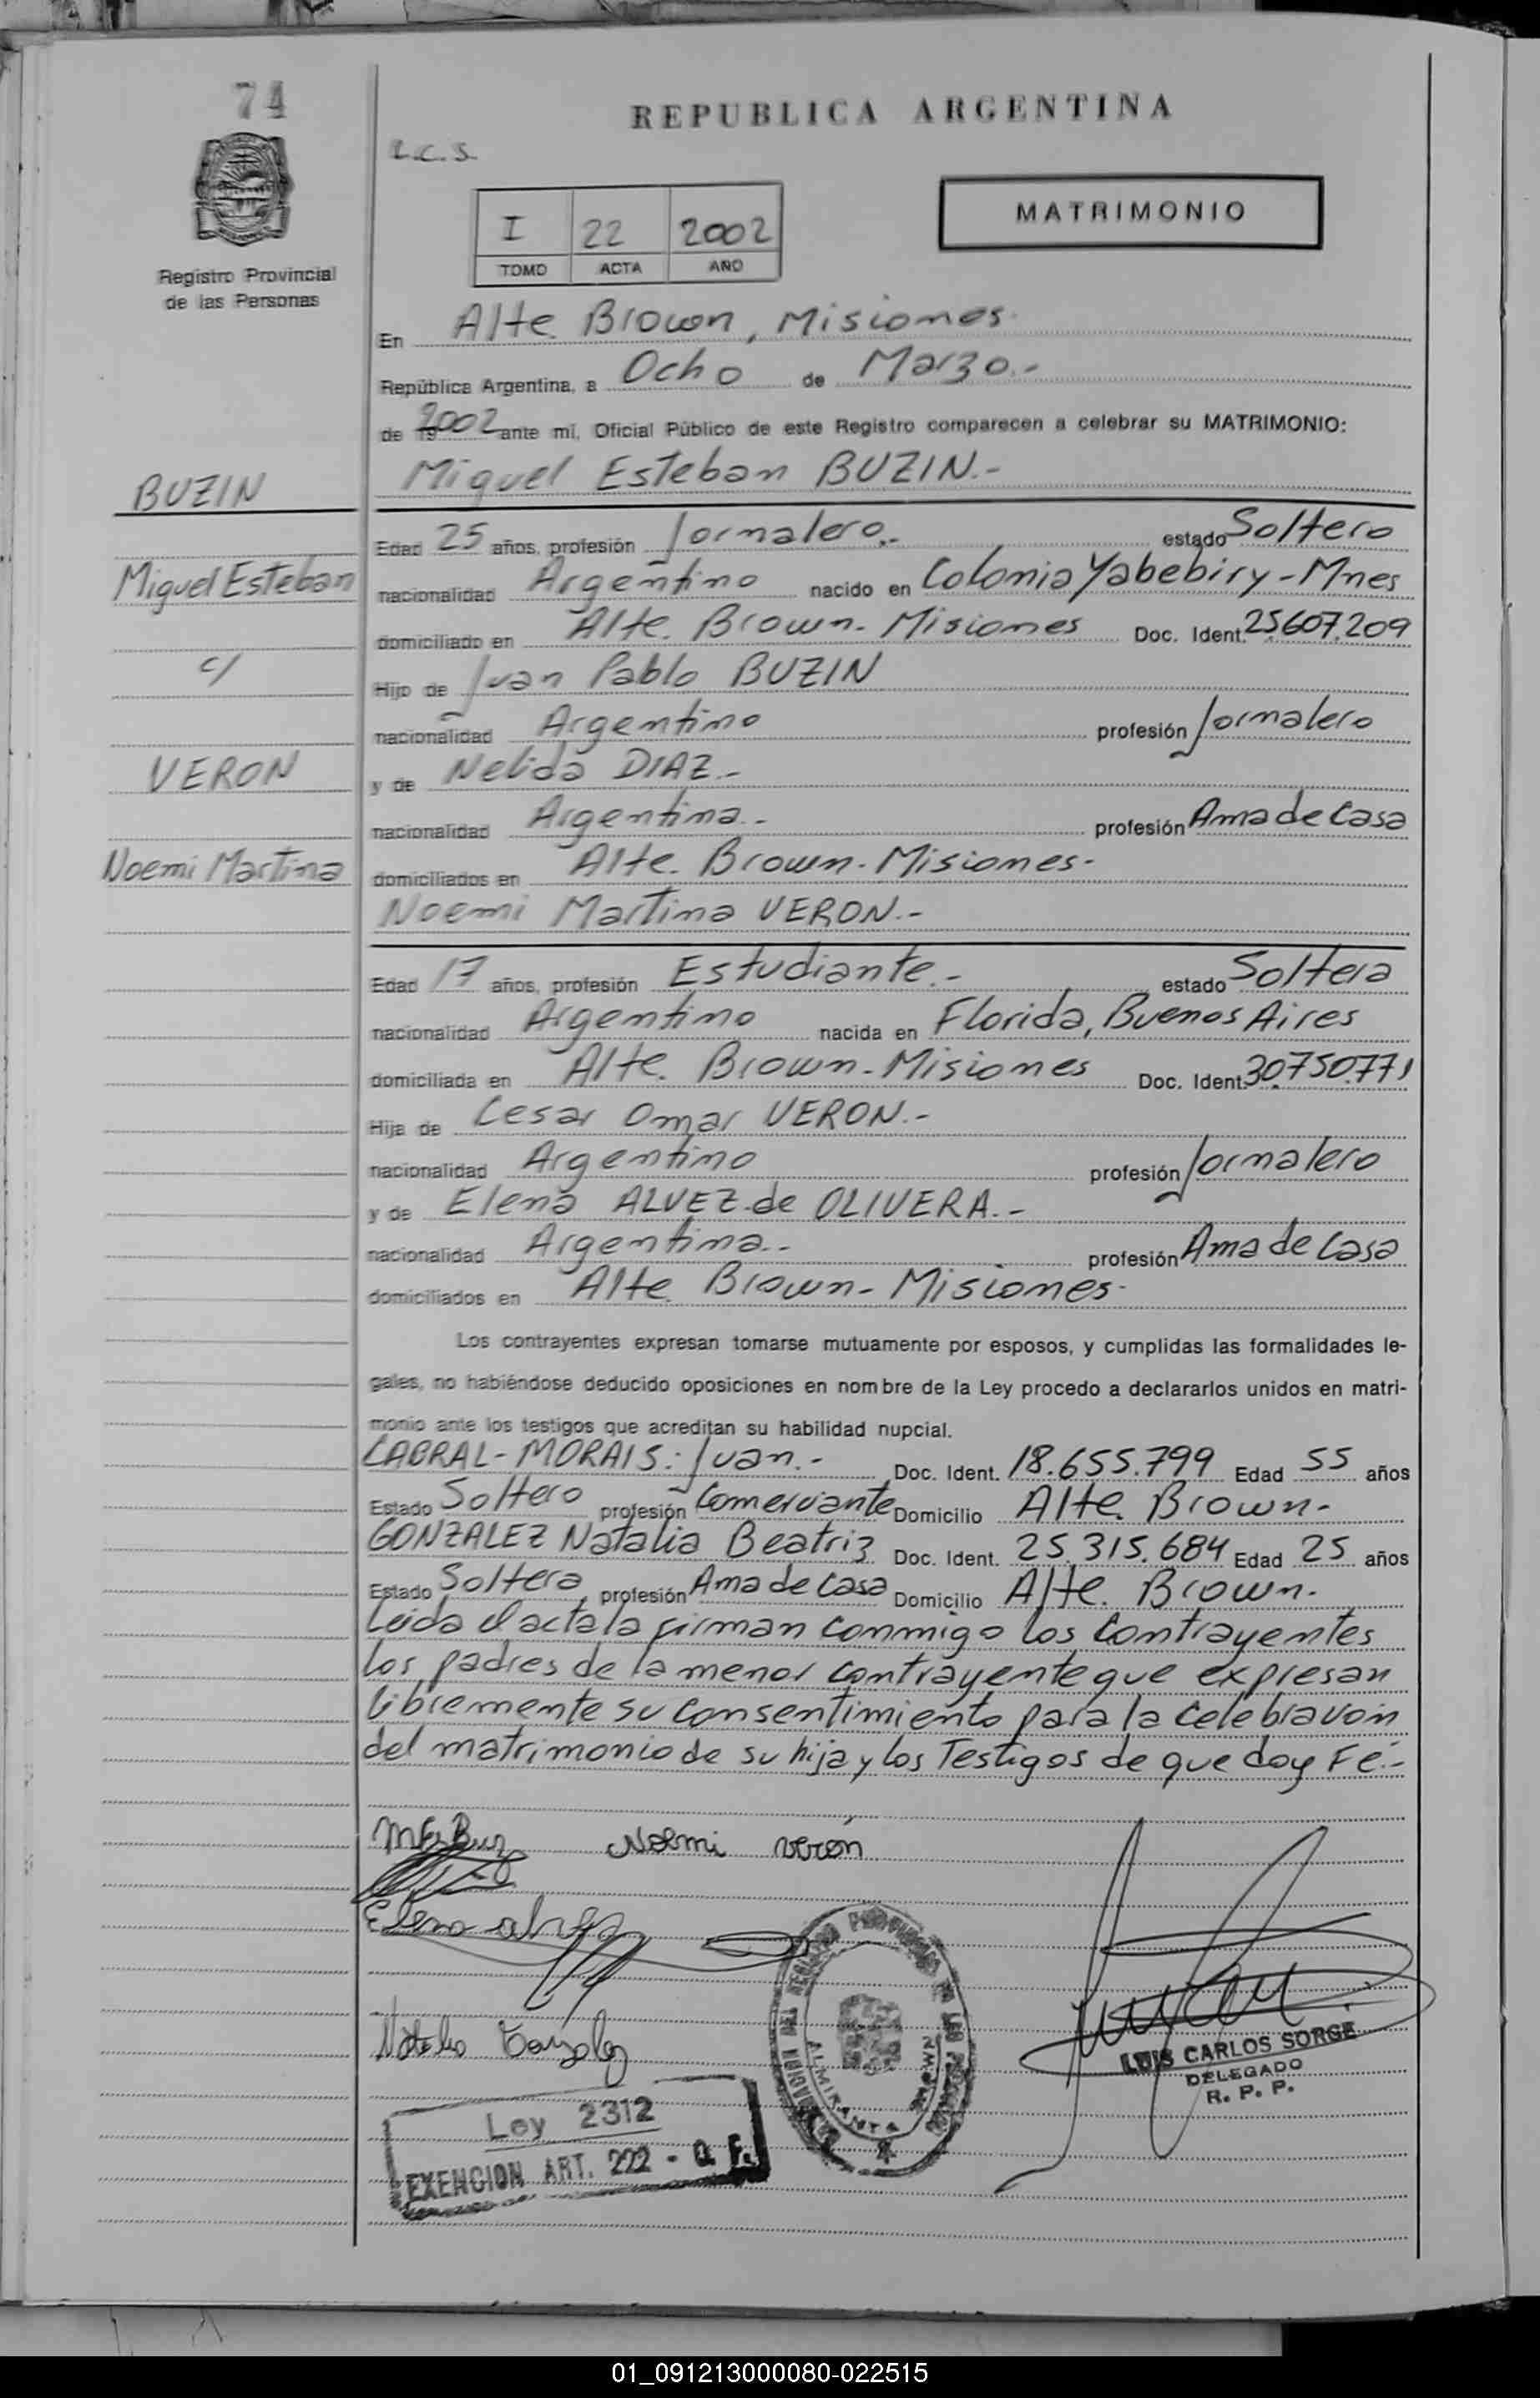 74
REPUBLICA ARGENTINA
L.C.S.
I 22 2002
TOMO ACTA AÑO
MATRIMONIO
Registro Provincial
de las Personas
En Alte Brown, Misiones.
República Argentina, a Ocho de Marzo.-
de 19 2002 ante mí, Oficial Público de este Registro comparecen a celebrar su MATRIMONIO:
BUZIN
Miguel Esteban BUZIN.-
Edad 25 años, profesión Jornalero.- estado Soltero
Miguel Esteban
nacionalidad Argentino nacido en Colonia Yabebiry-Mnes
domiciliado en Alte. Brown. Misiones Doc. Ident. 25.607.209
c/
Hijo de Juan Pablo BUZIN
nacionalidad Argentino profesión Jornalero
VERON
y de Nelida DIAZ.-
nacionalidad Argentina.- profesión Ama de Casa
Noemi Martina
domiciliados en Alte. Brown. Misiones.
Noemi Martina VERON.-
Edad 17 años, profesión Estudiante.- estado Soltera
nacionalidad Argentino nacida en Florida, Buenos Aires
domiciliada en Alte. Brown. Misiones Doc. Ident. 30.750.771
Hija de Cesar Omar VERON.-
nacionalidad Argentino profesión Jornalero
y de Elena ALVEZ de OLIVERA.-
nacionalidad Argentina.- profesión Ama de Casa
domiciliados en Alte. Brown. Misiones.
Los contrayentes expresan tomarse mutuamente por esposos, y cumplidas las formalidades le-
gales, no habiéndose deducido oposiciones en nombre de la Ley procedo a declararlos unidos en matri-
monio ante los testigos que acreditan su habilidad nupcial.
CABRAL-MORAIS: Juan.- Doc. Ident. 18.655.799 Edad 55 años
Estado Soltero profesión Comerciante Domicilio Alte. Brown.
GONZALEZ Natalia Beatriz Doc. Ident. 25.315.684 Edad 25 años
Estado Soltera profesión Ama de Casa Domicilio Alte. Brown.
Leida el acta la firman conmigo los Contrayentes
los padres de la menor contrayente que expresan
libremente su consentimiento para la Celebracion
del matrimonio de su hija y los Testigos de que doy Fé.-
Noemi verón
Elena
Natalia Gonzalez
LUIS CARLOS SORGE
DELEGADO
R. P. P.
Ley 2312
EXENCION ART. 222 - Q. F.
01_091213000080-022515